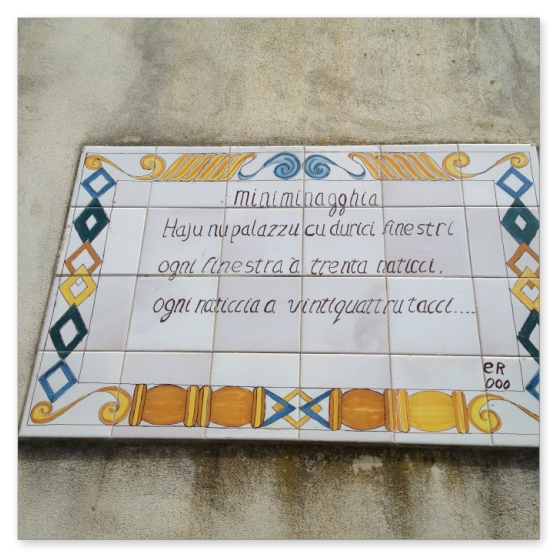 miniminagghia
Haju nu palazzu cu durici finestri
ogni finestra a trenta naticci.
ogni naticcia a vintiquattru tacci....
eR
000